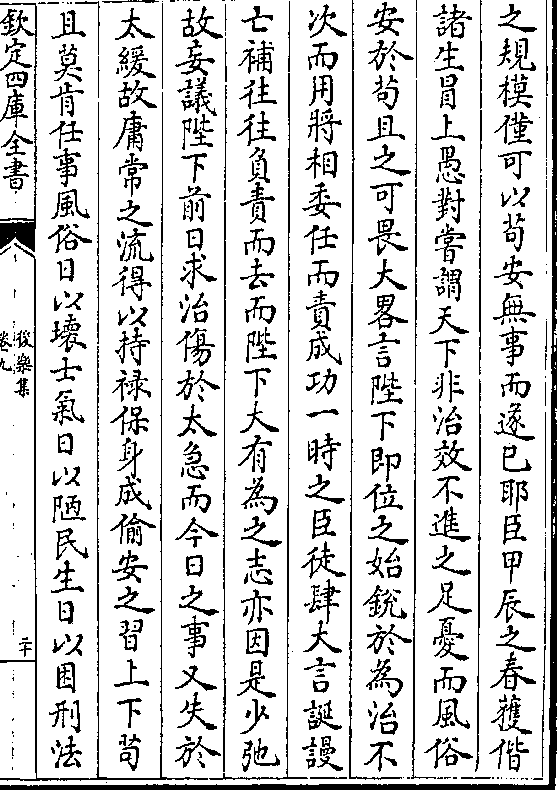 之規模僅可以苟安無事而遂已耶臣甲辰之春蒱獲偕
諸生冒上愚對嘗謂天下非治效不進之足憂而風俗
安於苟且之可畏大畧言陛下即位之始銳於為治不
次而用將相委任而責成功一時之臣徒肆大言誕謾
亡補往往負責而去而陛下大有為之志亦因是少弛
故妄議陛下前日求治傷於太急而今日之事又失於
太緩故庸常之流得以持禄保身成偷安之習上下苟
且莫肯任事風俗日以壊士氣日以陋民生日以困刑法
欽定四庫全書
後樂集
卷九
二十